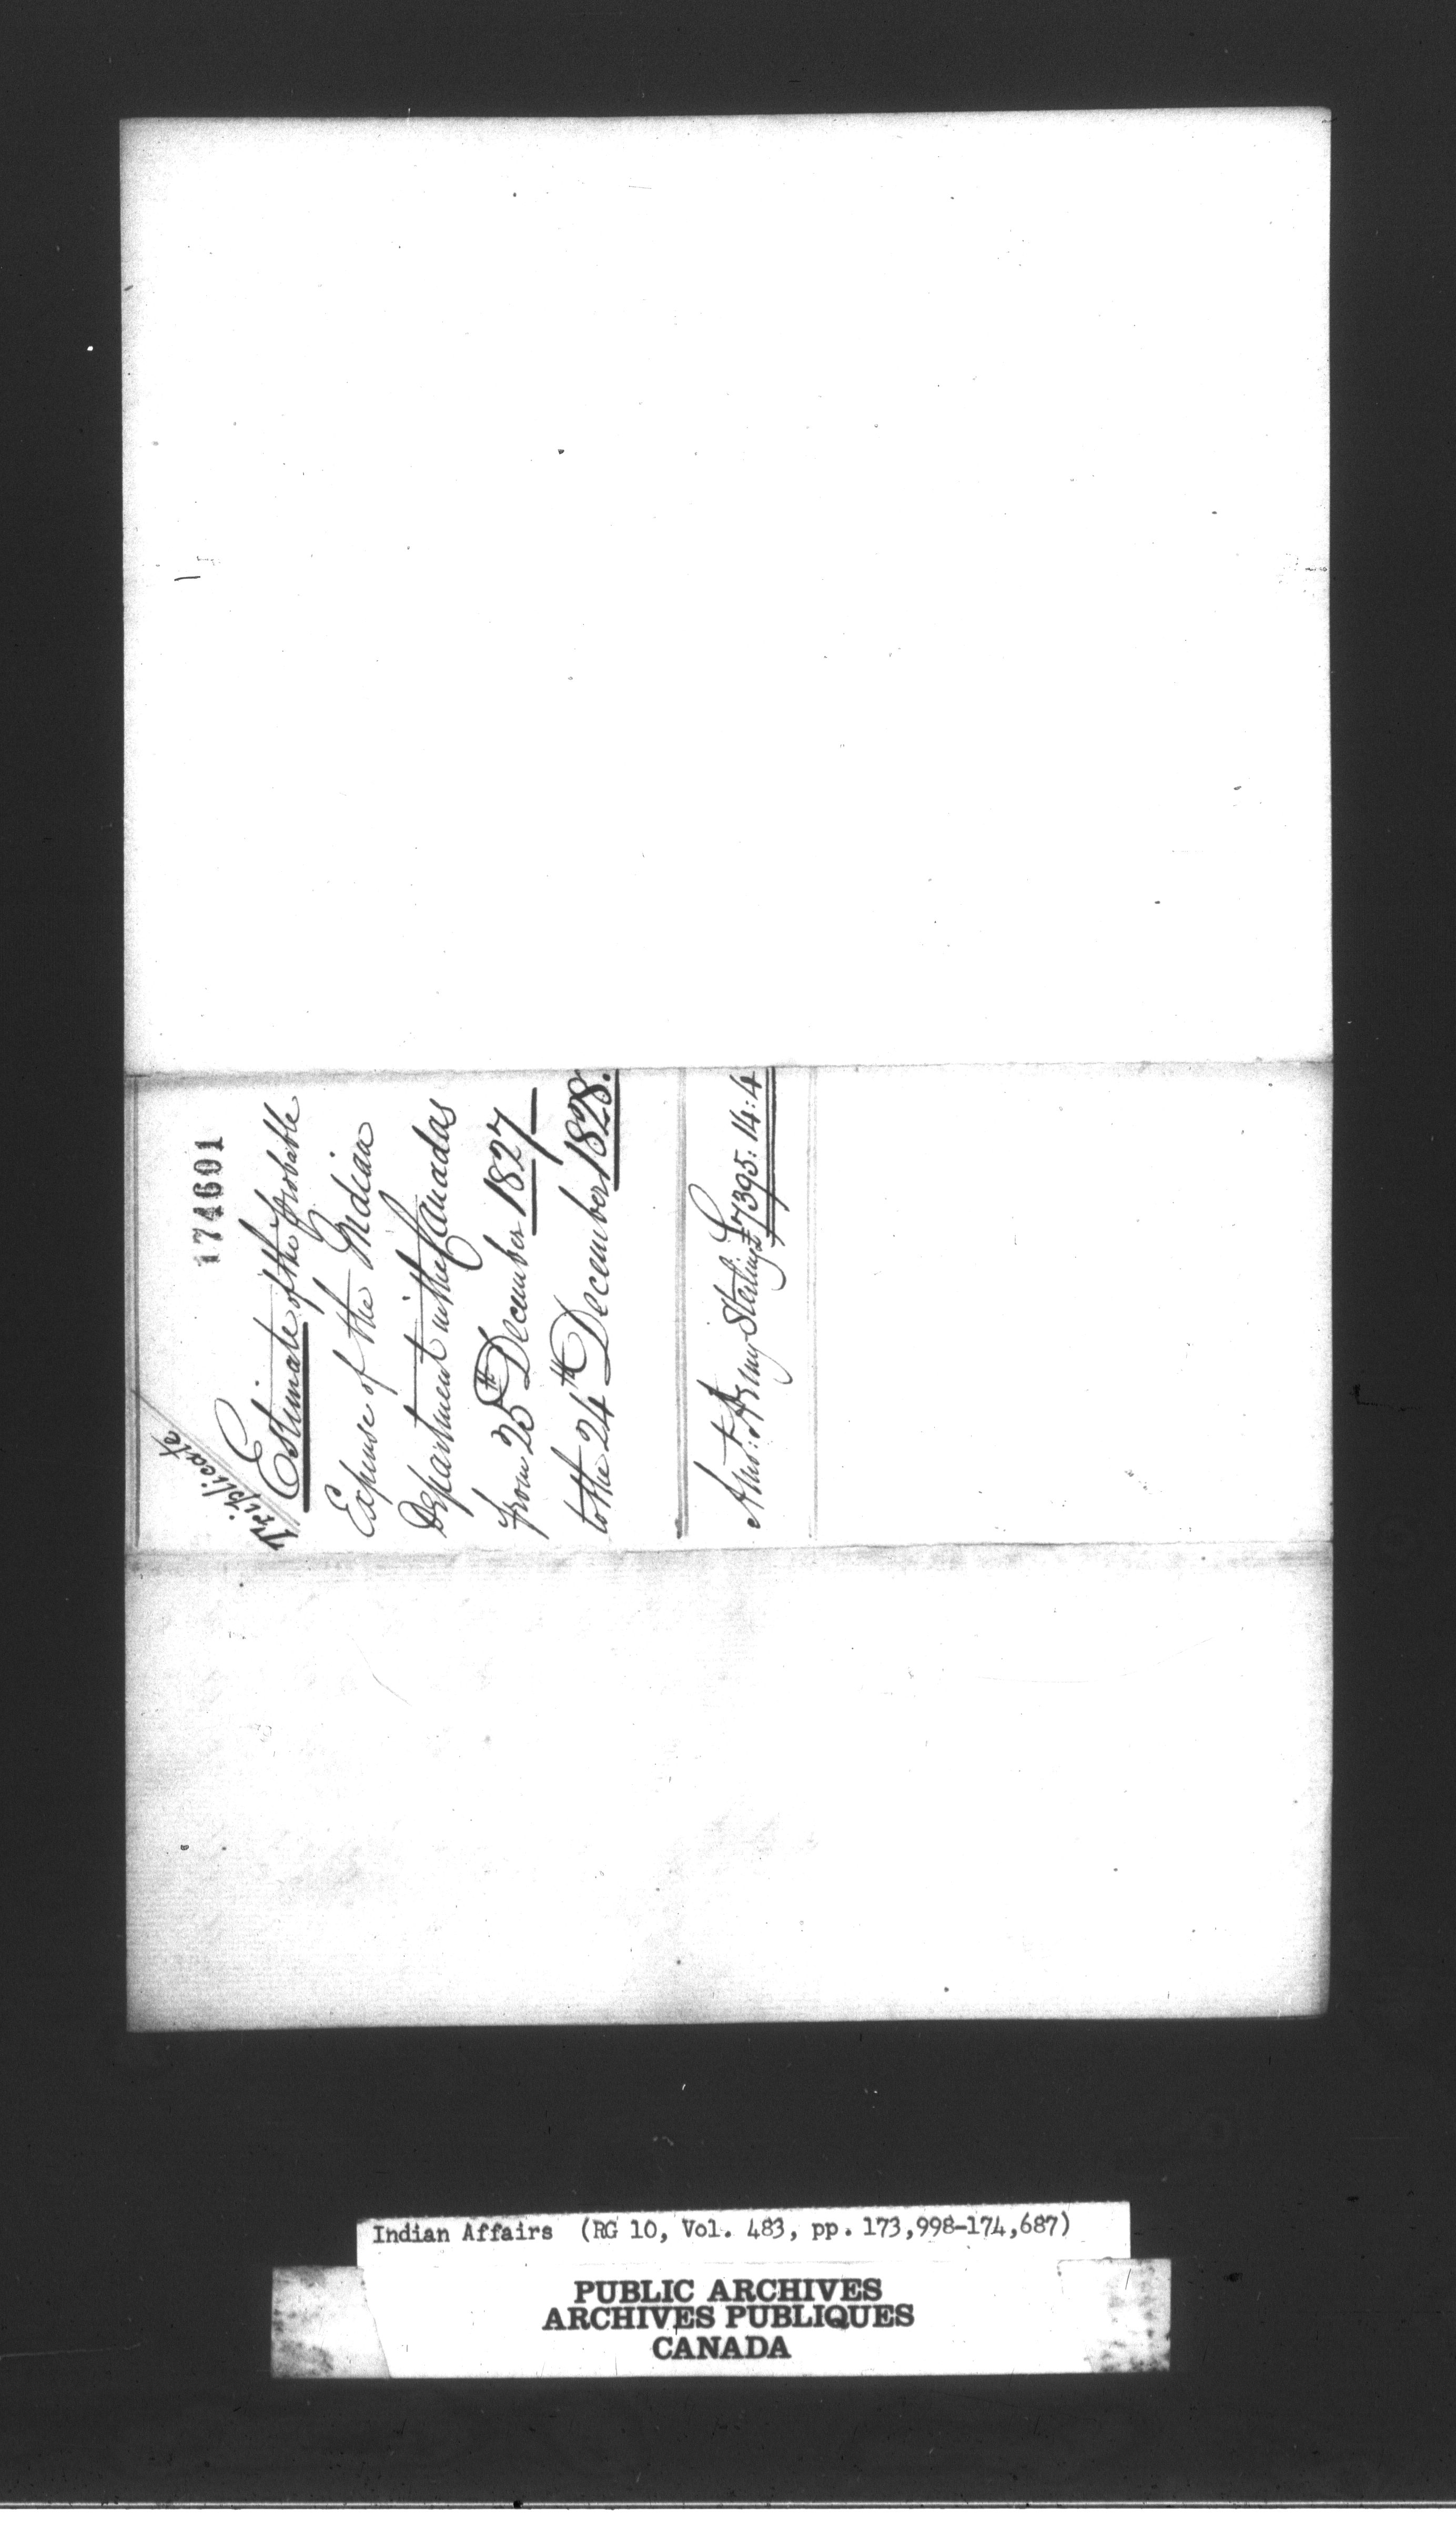 174601
Triplicate
Estimate of the Probable
Expense of the Indian
Department in the Canadas
from 25th December 1827
to the 24th December 1828.
Amt: Army Sterling £7395:14:4
Indian Affairs (RG 10, Vol. 483, pp. 173,998-174,687)
PUBLIC ARCHIVES
ARCHIVES PUBLIQUES
CANADA